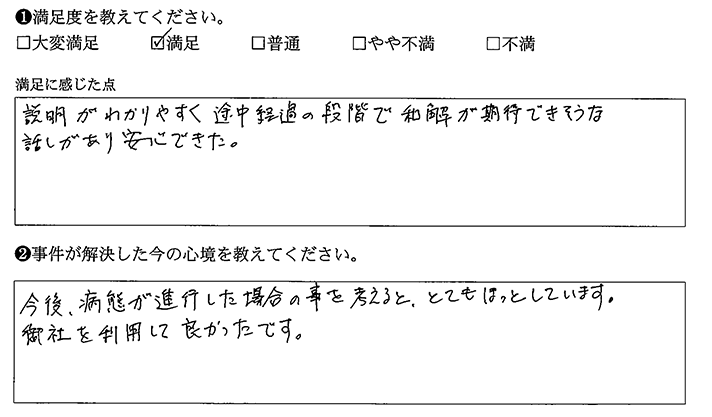 ❶満足度を教えてください。
□大変満足 ☑満足 □普通 □やや不満 □不満
満足に感じた点
説明がわかりやすく途中経過の段階で和解が期待できそうな
話しがあり安心できた。
❷事件が解決した今の心境を教えてください。
今後、病態が進行した場合の事を考えると、とてもほっとしています。
御社を利用して良かったです。